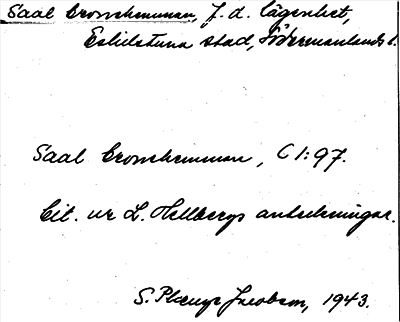 Saal Cronohemman, f. d. lägenhet,
Eskilstuna stad, Södermanlands l.
Saal Cronohemman, C 1:97.
Cit. ur L. Hellbergs anteckningar.
S. Jacobson, 1943.